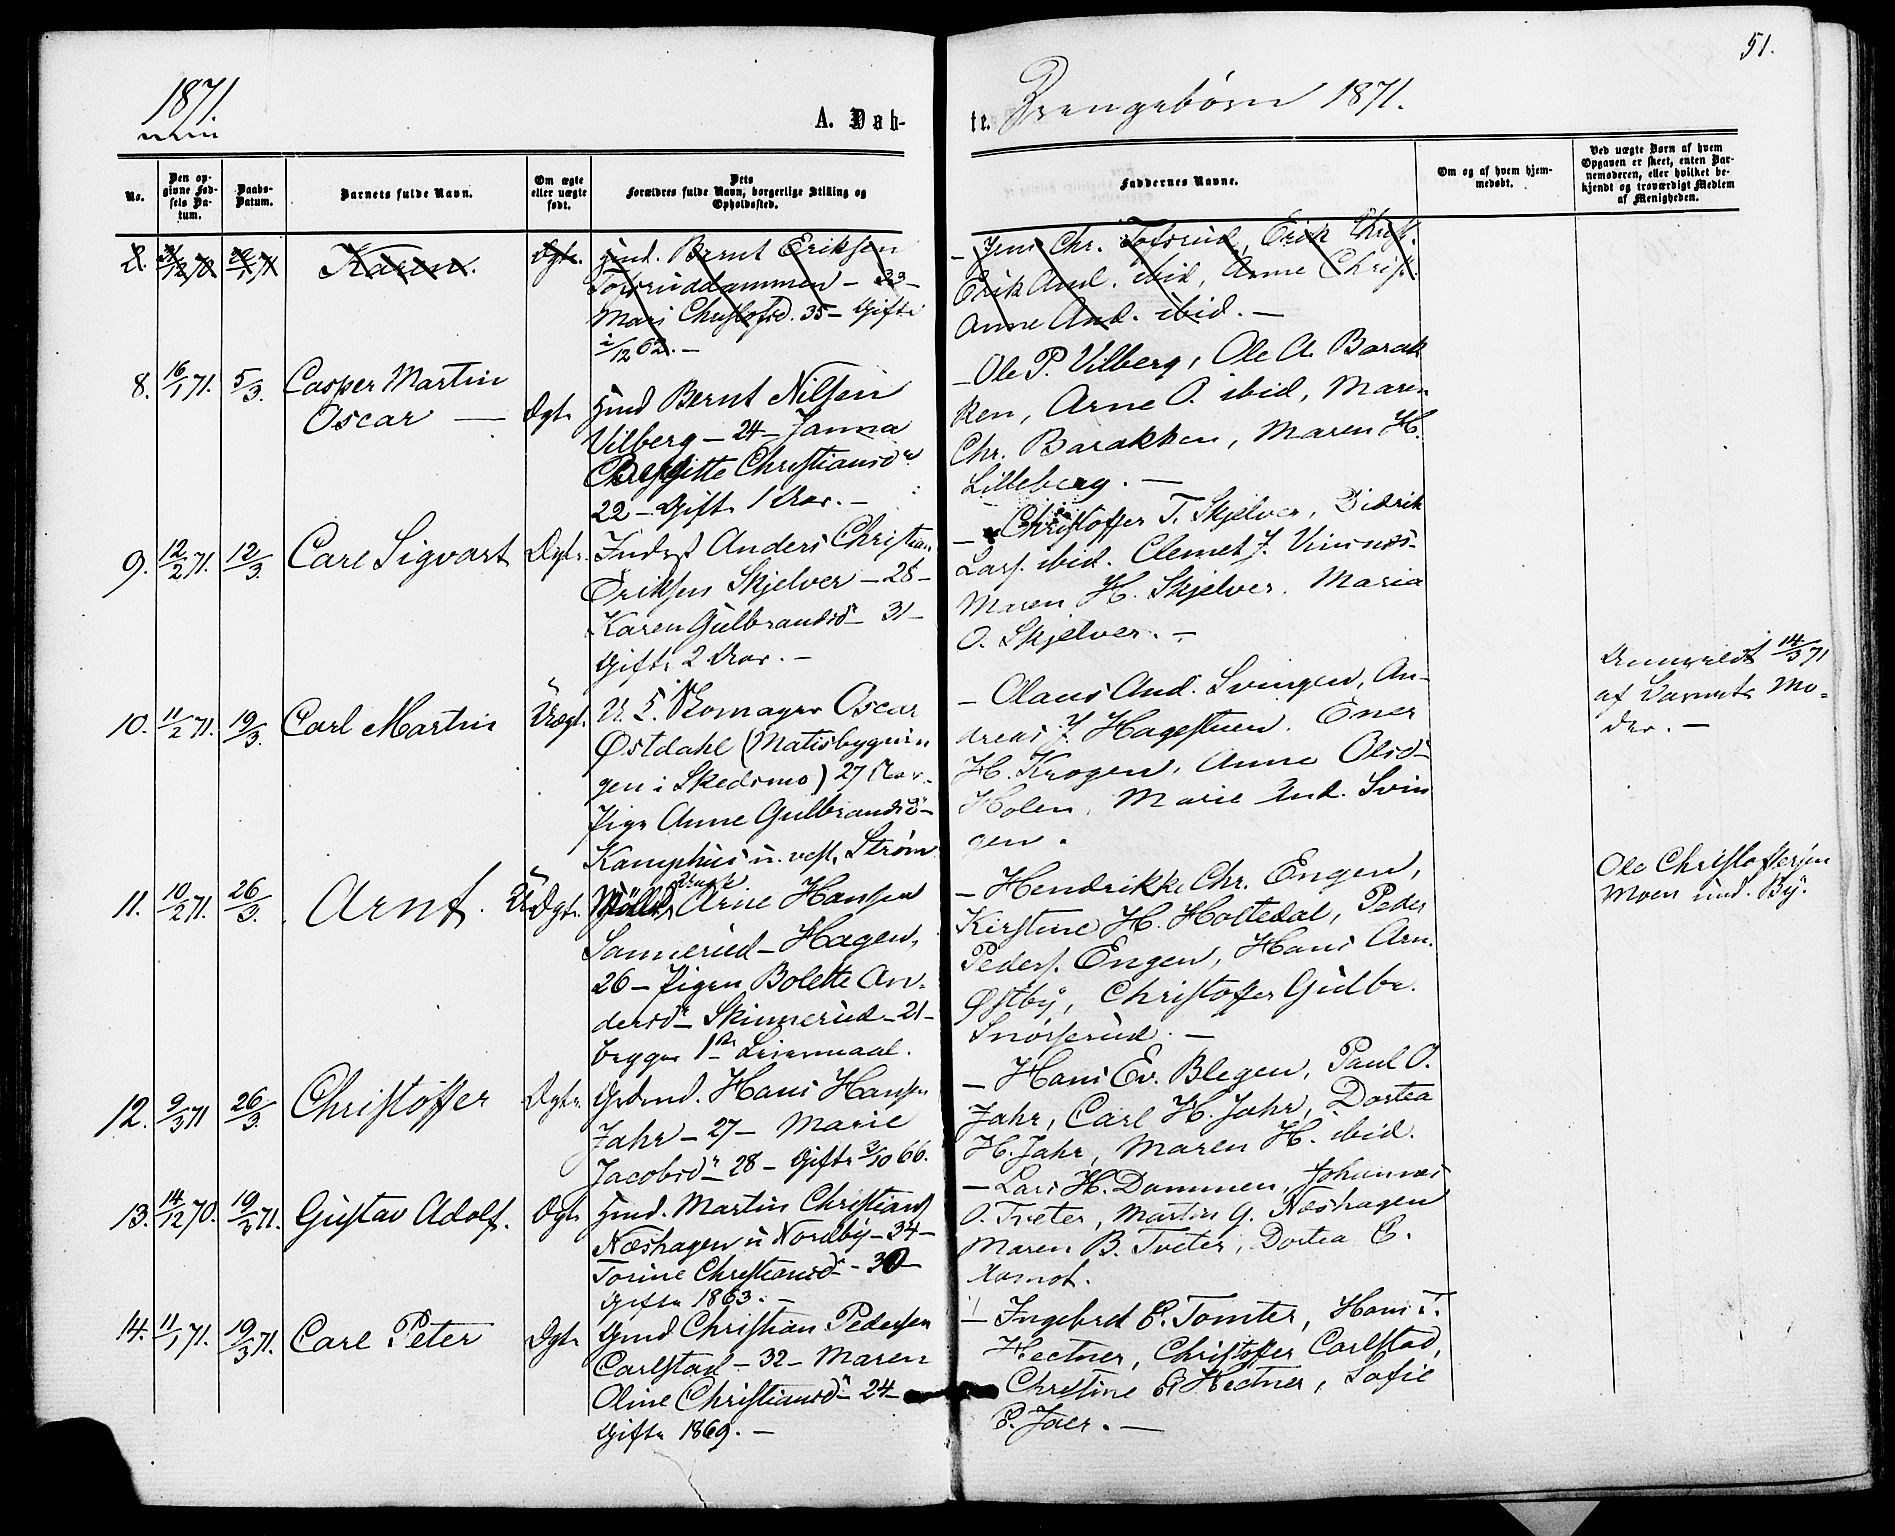 51.
1871.
A. Døb-
te. Drengebørn 1871.
No.
Den op-
givne Fød-
sels Da-
tum.
Daabs-
Datum.
Barnets fulde Navn.
Om ægte
eller uægte
født.
Dets
Forældres fulde Navn, borgerlige Stilling og
Opholdssted.
Faddernes Navne.
Om og af hvem hjem-
medøbt.
Ved uægte Børn af hvem
Opgaven er skeet, enten Bar-
nemoderen, eller hvilket be-
kjendt og troværdigt Medlem
af Menigheden.
Karen. Ægte. Huusd. Bernt Eriksen
Mari Christofsd. 35 – Gifte
2/12 62. –
– Jens Chr. Tofsrud, Erik Christ.
Erik And. ibid, Anne Christ.
Anne And. ibid. –
8. 16/1 71. 5/3. Casper Martin
Oscar — Ægte Huusd Bernt Nilsen
Vilberg – 24 – Janna
Birgitte Christiansdr
22 – Gifte 1 Aar. –
– Ole P. Vilberg, Ole A. Barak
ken, Arne O. ibid, Maren
Chr. Barakken, Maren H.
Lilleberg. –
9. 12/2 71. 12/3. Carl Sigvart Ægte. Inderst Anders Christian
Eriksen Skjelver – 28 –
Karen Gulbrandsdr 31 –
Gifte 2 Aar. –
– Christoffer T. Skjelver, Didrik
Lars. ibid. Clemet J. Vinsnæs.
Maren H. Skjelver. Maria
O. Skjelver. –
10. 11/2 71. 19/3. Carl Martin Uægt. U. K. Skomager Oscar
Østdahl (Matisbygnin
gen i Skedsmo) 27 Aar.
Pige Anne Gulbrandsdr
Kamphus u. vest. Strøm
– Olaus And. Svingen, An-
dreas J. Hagestuen. Ener
H. Krogen, Anne Olsdr
Holen, Marie And. Svin
gen.
Anmeldt 14/3 71
af Barnets Mo-
der. –
11. 10/2 71. 26/3. Arnt. UÆgte. Arne Hansen
Sannerud – Hagen,
26 – Pigen Bolette An-
dersdr Skinnerud – 21 –
begges 1ste Leiermaal.
– Hendrikke Chr. Engen,
Kirstine H. Holtedal, Peder
Peders. Engen, Hans Arn.
Østby, Christoffer Gulbr.
Snørserud. –
Ole Christoffersen
Moen und. By.
12. 9/3 71 26/3. Christoffer Ægte. Grdmd. Hans Hansen
Jahr – 27 – Marie
Jacobsdr 28 – Gifte 3/10 66.
– Hans Ev. Blegen, Paul O.
Jahr, Carl H. Jahr, Dortea
H. Jahr, Maren H. ibid.
13. 14/12 70. 19/3 71. Gustav Adolf. Ægte Husmd. Martin Christians
Næshagen u Nordby – 34 –
Torine Christiansdr – 30 –
Gifte 1863. –
– Lars H. Dammen, Johannes
O. Tveter, Martin G. Næshagen
Maren B. Tveter, Dortea C.
Aamot.
14. 11/1 71. 19/3 71. Carl Peter Ægte Grmd Christian Pedersen
Carlstad – 32 – Maren
Oline Christiansdr – 24 –
Gifte 1869. –
– Ingebrd E. Tomter, Hans T.
Hectner, Christoffer Carlstad,
Christine E. Hectner, Sofie
P. Jaer. –